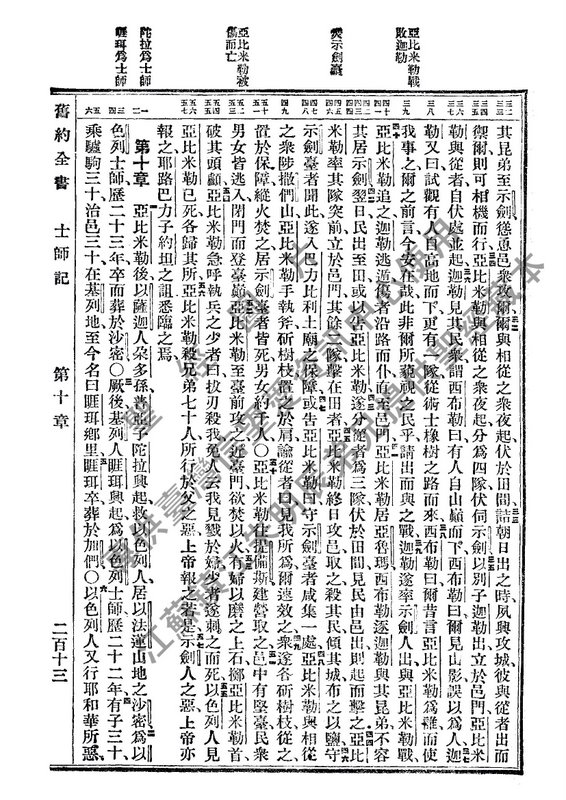 亞比米勒戰
敗迦勒
焚示劍臺
亞比米勒被
傷而亡
陀拉爲士師
睚珥爲士師
其昆弟至示劍慫恿邑衆攻爾爾與相從之衆夜起伏於田間詰朝日出之時夙興攻城彼與從者出而
禦爾則可相機而行亞比米勒與相從之衆夜起分爲四隊伏伺示劍以別子迦勒出立於邑門亞比米
勒與從者自伏處並起迦勒見其民衆謂西布勒曰有人自山巔而下西布勒曰爾見山影誤以爲人迦
勒又曰試觀有人自高地而下更有一隊從術士橡樹之路而來西布勒曰爾昔言亞比米勒爲誰而使
我事之爾之前言今安在哉此非爾所藐視之民乎請出而與之戰迦勒遂率示劍人出與亞比米勒戰
亞比米勒追之迦勒逃遁傷者沿路而仆直至邑門亞比米勒居亞魯瑪西布勒逐迦勒與其昆弟不容
其居示劍翌日民出至田或以告亞比米勒遂分從者爲三隊伏於田間見民由邑出則起而擊之亞比
米勒率其隊突前立於邑門其餘二隊擊在田者亞比米勒終日攻邑取之殺其民傾其城布之以鹽守
示劍臺者聞此遂入巴力比利土廟之保障或告亞比米勒曰守示劍臺者咸集一處亞比米勒與相從
之衆陟撒們山亞比米勒手執斧斫樹枝置之於肩諭從者曰見我所爲爾速效之衆遂各斫樹枝從之
置於保障縱火焚之居示劍臺者皆死男女約千人〇亞比米勒往提備斯建營取之邑中有堅臺民衆
男女皆逃入閉門而登臺巔亞比米勒至臺前攻之近臺門欲焚以火有婦以磨之上石擲亞比米勒首
破其頭顱亞比米勒急呼執兵之少者曰拔刃殺我免人云我見戮於婦少者遂刺之而死以色列人見
亞比米勒已死各歸其所亞比米勒殺兄弟七十人所行於父之惡上帝報之若是示劍人之惡上帝亦
報之耶路巴力子約坦之詛悉臨之焉
第十章 亞比米勒後以薩迦人朵多孫普瓦子陀拉興起救以色列人居以法蓮山地之沙密爲以
色列士師歷二十三年卒而葬於沙密〇厥後基列人睚珥興起爲以色列士師歷二十二年有子三十
乘驢駒三十治邑三十在基列地至今名曰睚珥鄉里睚珥卒葬於加們〇以色列人又行耶和華所惡
舊約全書 士師記 第十章 二百十三